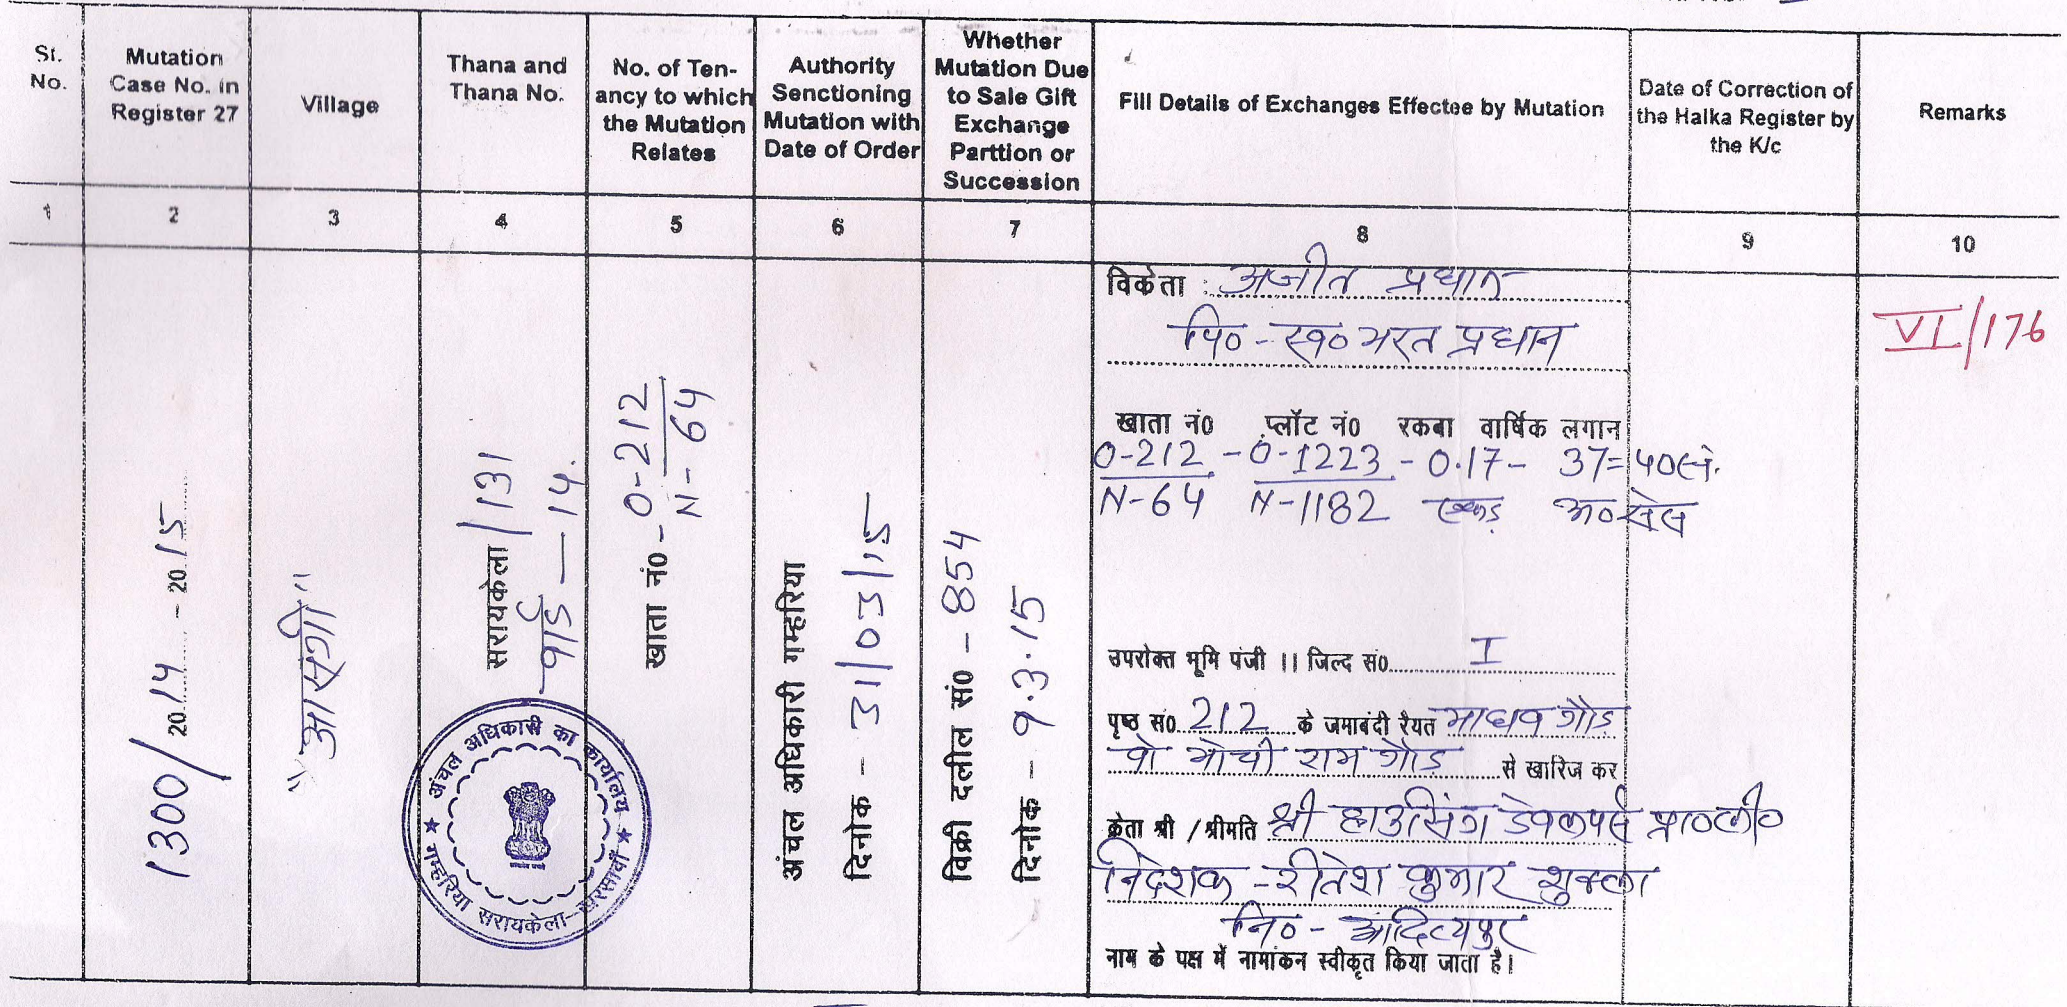 Sr. No.
Mutation Case No. in Register 27
Village
Thana and Thana No.
No. of Ten-ancy to which the Mutation Relates
Authority Senctioning Mutation with Date of Order
Whether Mutation Due to Sale Gift Exchange Parttion or Succession
Fill Details of Exchanges Effectee by Mutation
Date of Correction of the Halka Register by the K/c
Remarks
1 2 3 4 5 6 7 8 9 10
1300/2014 - 2015
"आसंगी"
सरायकेला/131
वार्ड - 14.
खाता नं० - O-212
N-64
अंचल अधिकारी गम्हरिया
दिनोक - 31/03/15
विक्री दलील सं० - 854
दिनोक - 9.3.15
विकेता : अजीत प्रधान
पि० - स्व० भरत प्रधान
खाता नं० प्लॉट नं० रकबा वार्षिक लगान
O-212 - O-1223 - 0.17 - 37=40
N-64 N-1182 एकड़ अ० सेस
उपरोक्त भूमि पंजी ।। जिल्द सं० I
पृष्ठ सं० 212 के जमाबंदी रैयत माधव गौड़
वो मोची राम गौड़ से खारिज कर
क्रेता श्री / श्रीमति श्री हाउसिंग डेवलपर्स प्रा० ली०
निदेशक - रीतेश कुमार शुक्ला
नि० - आदित्यपुर
नाम के पक्ष में नामांकन स्वीकृत किया जाता है।
VI/176
अंचल अधिकारी का कार्यालय
गम्हरिया सरायकेला-खरसावाँ